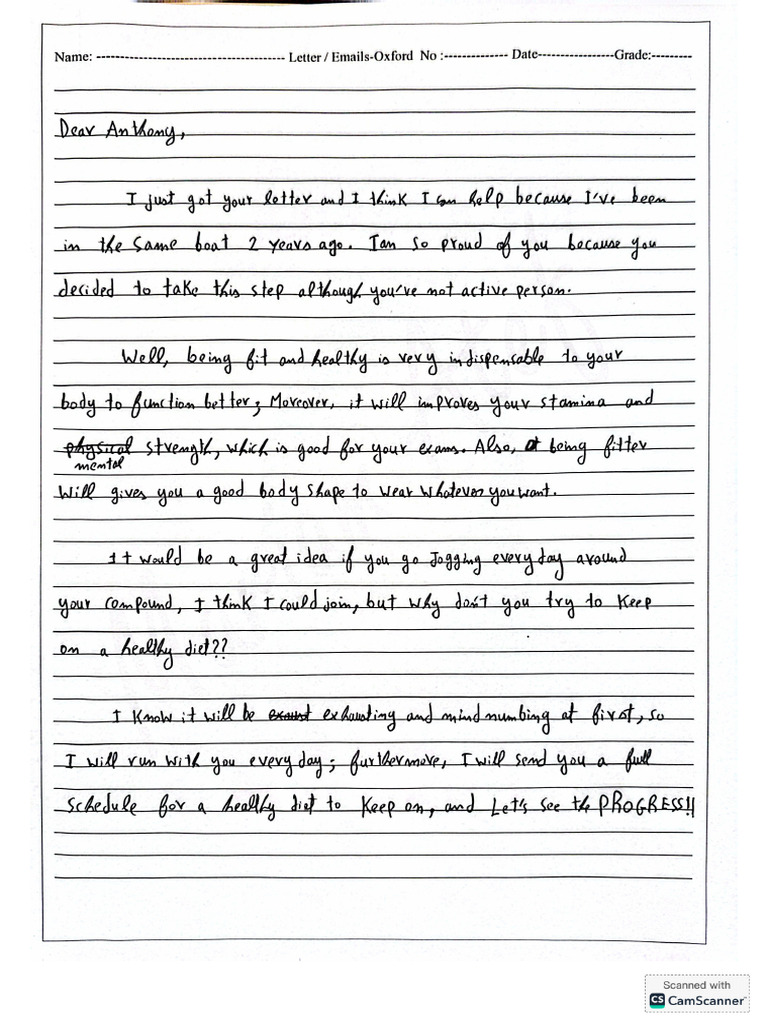 Name: --------------------------------------- Letter / Emails-Oxford No :------------- Date----------------Grade:---------
Dear Anthony,
I just got your letter and I think I can help because I've been
in the same boat 2 years ago. I am so proud of you because you
decided to take this step although you've not active person.
Well, being fit and healthy is very indispensable to your
body to function better; Moreover, it will improves your stamina and
physical strength, which is good for your exams. Also, being fitter
mental
will gives you a good body shape to wear whatever you want.
It would be a great idea if you go Jogging everyday around
your compound, I think I could join, but why don't you try to keep
on a healthy diet??
I know it will be exhausting and mind numbing at first, so
I will run with you everyday; furthermore, I will send you a full
schedule for a healthy diet to keep on, and Let's see the PROGRESS!!
Scanned with
CS CamScanner